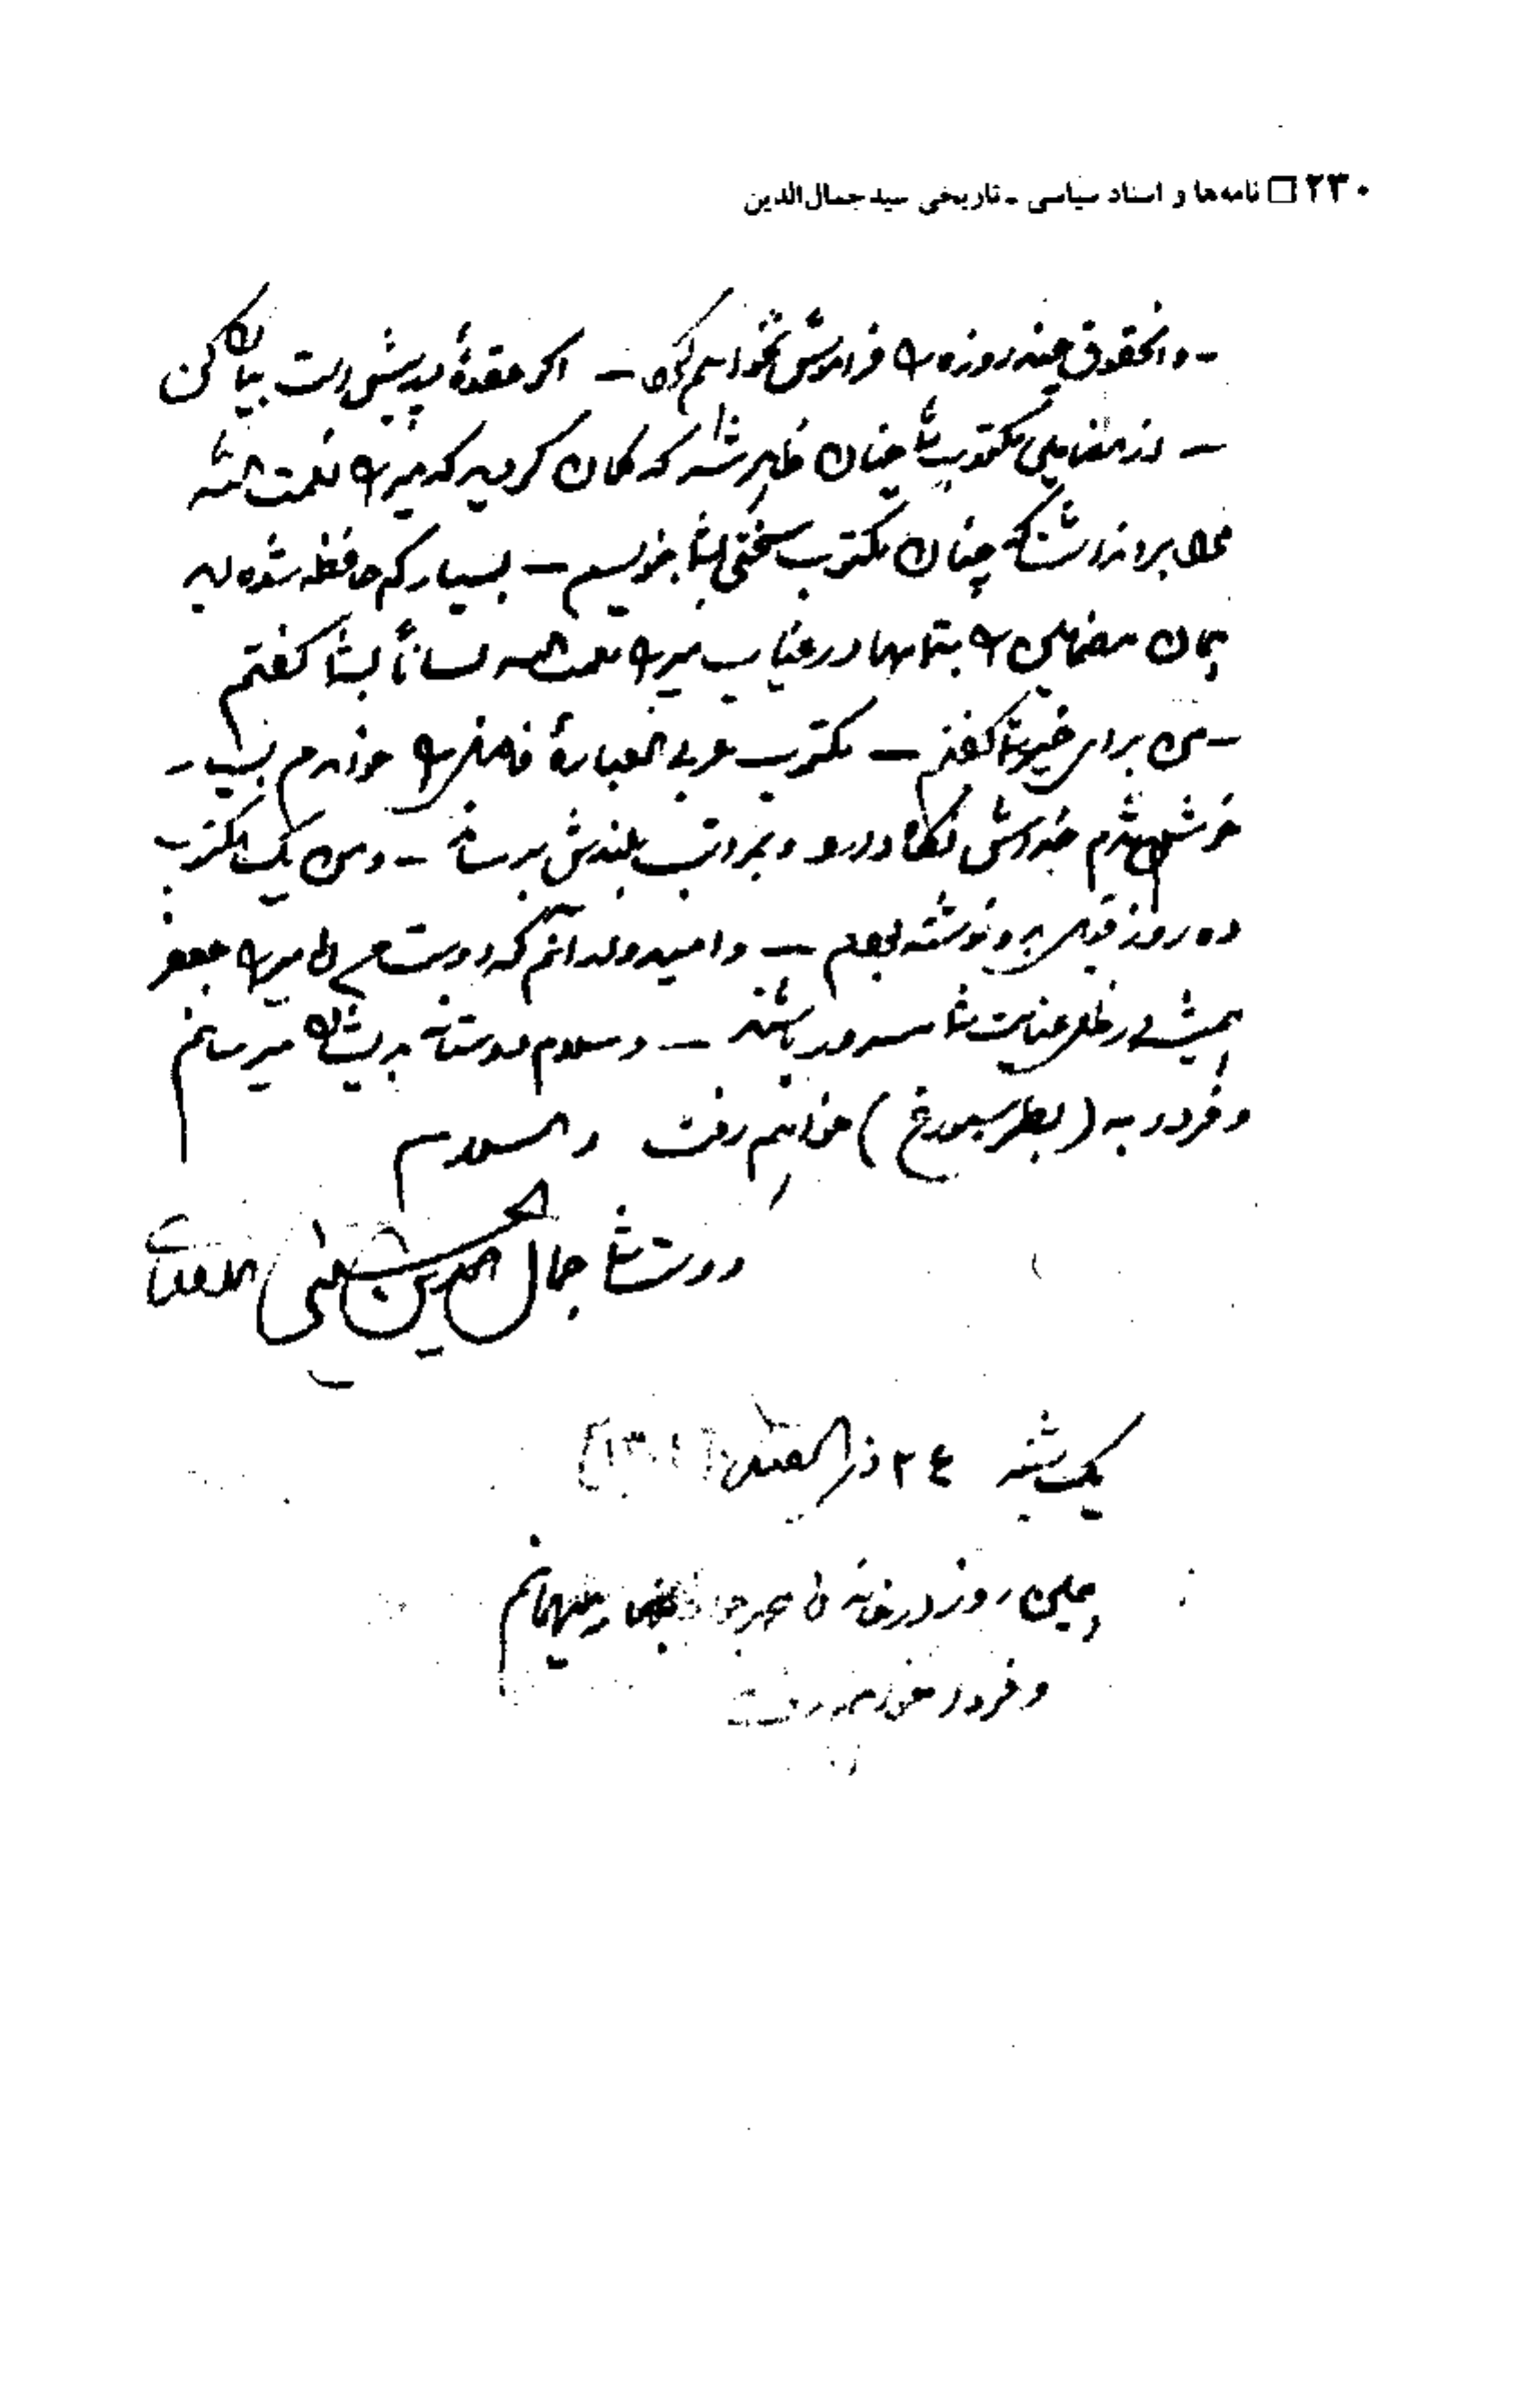 ۲۳۰ □ نامه‌ها و اسناد سیاسی ـ تاریخی سید جمال‌الدین
ـ و حقوق چند روزه را فراموش نخواهم کرد ـ اگر عقدهٔ در پیش است بیان کن
ـ از مضامین مکتوب شما چنان ظاهر شد که گمان کردید که میرزا نعمت الله
مرا بر آن داشت که چنان مکتوب سختی بشما بنویسم ـ بسیار کم حافظه شده اید
همان مضامین را بتمامها در غیاب میرزا نعمت الله لساناً بشما گفتم
ـ من برای خیر شما گفتم ـ مکتوب عربی العبارهٔ را خواندم بسیار
خوش شدم خداش نگاه دارد و بمراتب بلندش برساند ـ و من یک مکتوب
ده روز قبل برو نوشته بودم ـ و امیدوارم که دوست من میرزا جعفر
همیشه در ظل عنایت شما مسرور باشند ـ و سلام دوستانه بایشان میرسانم
و فردا به (پطرسبورغ) خواهم رفت والسلام
دوست شما جمال الدین الحسینی الافغانی
یکشنبه ٢٤ ذی القعده
همین روز در خانه میهمانم
و فردا خواهم رفت